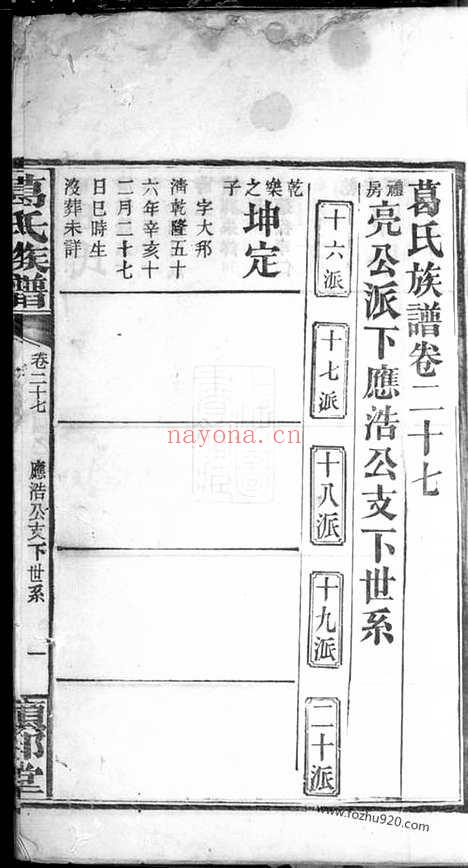 葛氏族譜卷二十七
禮房
亮公派下應浩公支下世系
十六派
十七派
十八派
十九派
二十派
乾樂之子
坤定
字大邦
清乾隆五十
六年辛亥十
二月二十七
日巳時生
沒葬未詳
葛氏族譜
卷二十七
應浩公支下世系
一
堂
nayona.cn
www.fozhu920.com